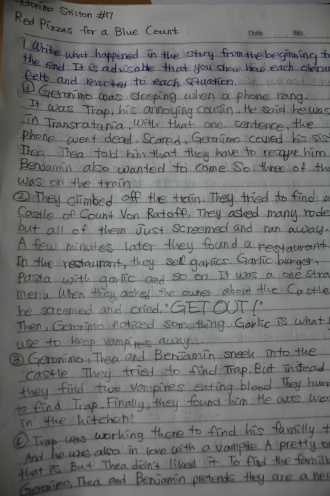 Geronimo Stilton #7
Red Pizzas for a Blue Count
Date No.
1. Write what happened in the story from the beginning to
the end. It is advisable that you show how each charac
felt and reacted to each situation.
① Geronimo was sleeping when a phone rang.
It was Trap, his annoying cousin. He said he was
In Transratania, with that one sentence, the
phone went dead. Scared, Geronimo called his sist
Then Thea told him that they have to rescue him
Benjamin also wanted to come So three of th
was on the train
② They climbed off the train. They tried to find a
Castle of Count Von Ratoff. They asked many rode
but all of them just screamed and ran away.
A few minutes later they found a restaurant
In the restaurant, they sell garlics. Garlic burger,
Pasta with garlic and so on It was a one stra
menu When they asked the owner about the Castle
he screamed and cried, "GET OUT!"
Then, Geronimo noticed something. Garlic is what
use to keep vampires away...
③ Geronimo, Thea and Benjamin sneek into the
castle They tried to find Trap. But instead
they find two vampires eating blood They hurr
to find Trap. Finally, they found him He was wor
in the kitchen!
④ Trap was working there to find his familly t
And he was also in love with a vampire. A pretty o
that is. But Thea didn't liked it To find the famill
Geronimo, Thea and Benjamin pretends they are a